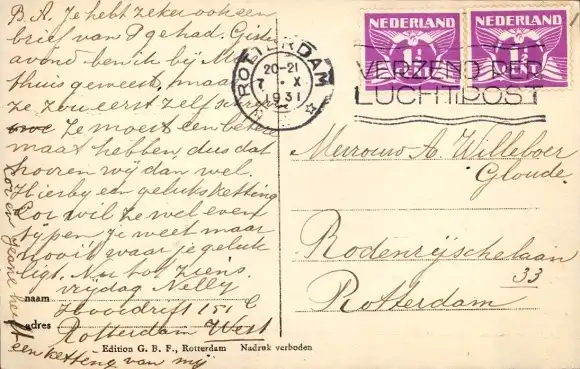 B. A. Je hebt zeker ook een
brief van P gehad. Gister
avond ben ik bij M
thuis geweest, maar
ze zou eerst zelf
Ze moest een
maat hebben, dus dat
hooren wij dan wel.
Hierbij een geluksketting
Cor wil ze wel even
typen, je weet maar
nooit waar je geluk
ligt. Nu tot ziens
vrijdag Nelly
naam
151 C
adres
Rotterdam West
een ketting van mij
Cor en
Edition G. B. F., Rotterdam Nadruk verboden
NEDERLAND
1½
CENT
NEDERLAND
1½
CENT
ROTTERDAM
20-21
7 X
1931
VERZEND PER
LUCHTPOST
Mevrouw A. Willeboer
Gloude.
Rodenrijschelaan
33
Rotterdam